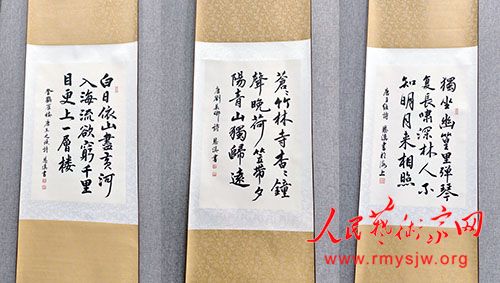 白日依山盡黄河
入海流欲窮千里
目更上一層楼
登鸛雀樓 唐王之渙詩 書
蒼〻竹林寺杳〻鐘
聲晚荷笠帶夕
陽青山獨歸遠
唐劉長卿詩 書
獨坐幽篁里彈琴
复長嘯深林人不
知明月来相照
唐王維詩 書於海上
人民藝術家网
www.rmysjw.org